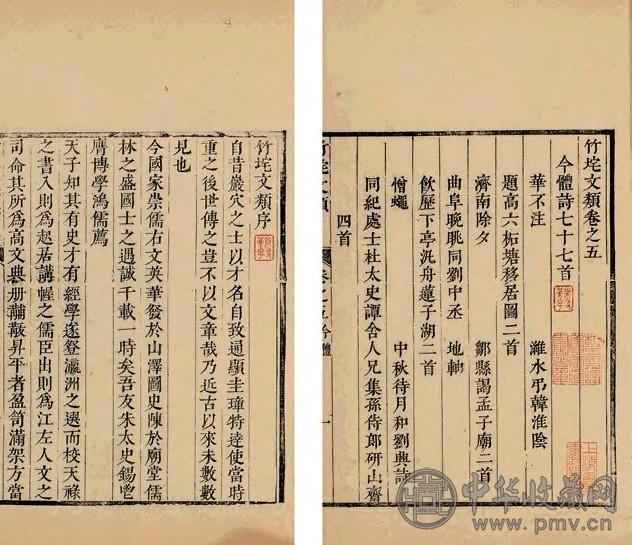 竹垞文類卷之五
今體詩七十七首
華不注 濰水弔韓淮陰
題高六柘塘移居圖二首
濟南除夕 鄒縣謁孟子廟二首
曲阜晚眺同劉中丞 地軸
飲歷下亭汎舟蓮子湖二首
憎蠅 中秋待月和劉典
同紀處士杜太史譚舍人兄集孫侍郎研山齋
四首
竹垞文類 卷之五今體 一
竹垞文類序
自昔巖穴之士以才名自致通顯圭璋特達使當時
重之後世傳之豈不以文章哉乃近古以來未數數
見也
今國家崇儒右文英華發於山澤圖史陳於廟堂儒
林之盛國士之遇誠千載一時矣吾友朱太史錫鬯
膺博學鴻儒薦
天子知其有史才有經學遂登瀛洲之選而校天祿
之書入則爲起居講幄之儒臣出則爲江左人文之
司命其所爲高文典册黼黻昇平者盈笥滿架方當
中华收藏网
www.pmv.cn